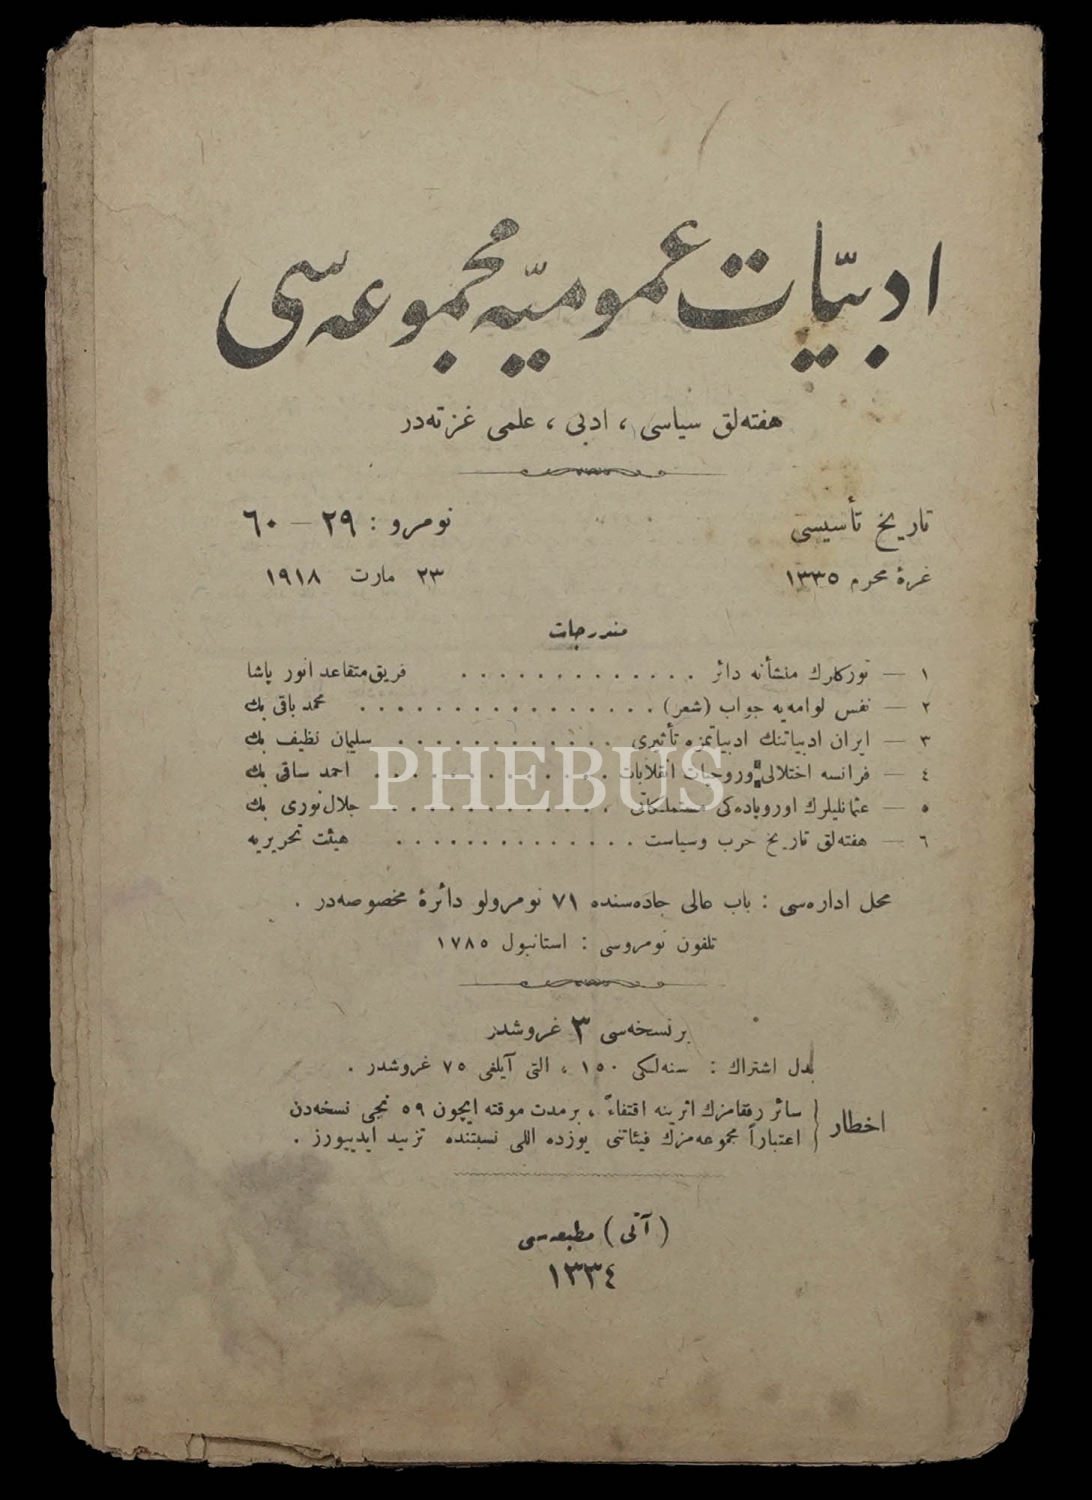 ادبیّات عمومیّه مجموعه‌سی
هفته‌لق سیاسی ، ادبی ، علمی غزته‌در
تاریخ تأسیسی
غرهٔ محرم ١٣٣٥
نومرو : ٢٩ — ٦٠
٢٣ مارت ١٩١٨
مندرجات
١ — تورکلرك منشأنه دائر . . . . . . . . . . . . . فریق متقاعد انور پاشا
٢ — نفس لوامه‌یه جواب (شعر) . . . . . . . . . . . . . . . . محمد باقی بك
٣ — ایران ادبیاتنك ادبیاتمزه تأثیری . . . . . . . . . . . . سلیمان نظیف بك
٤ — فرانسه اختلالی وروحیات انقلابات . . . . . . . . . . . . . احمد ساقی بك
٥ — عثمانلیلرك اوروپاده‌کی مستملکاتی . . . . . . . . . . . . جلال نوری بك
٦ — هفته‌لق تاریخ حرب وسیاست . . . . . . . . . . . . . هیئت تحریریه
PHEBUS
محل اداره‌سی : باب عالی جاده‌سنده ٧١ نومرولو دائرهٔ مخصوصه‌در .
تلفون نومروسی : استانبول ١٧٨٥
بر نسخه‌سی ٣ غروشدر
بدل اشتراك : سنه‌لکی ١٥٠ ، التی آیلغی ٧٥ غروشدر .
اخطار
سائر رفقامزك اثرینه اقتفاءً ، بر مدت موقته ایچون ٥٩ نجی نسخه‌دن
اعتباراً مجموعه‌مزك فیئاتنی یوزده اللی نسبتنده تزیید ایدییورز .
( آتی ) مطبعه‌سی
١٣٣٤